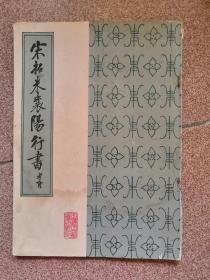 宋拓米襄陽行書